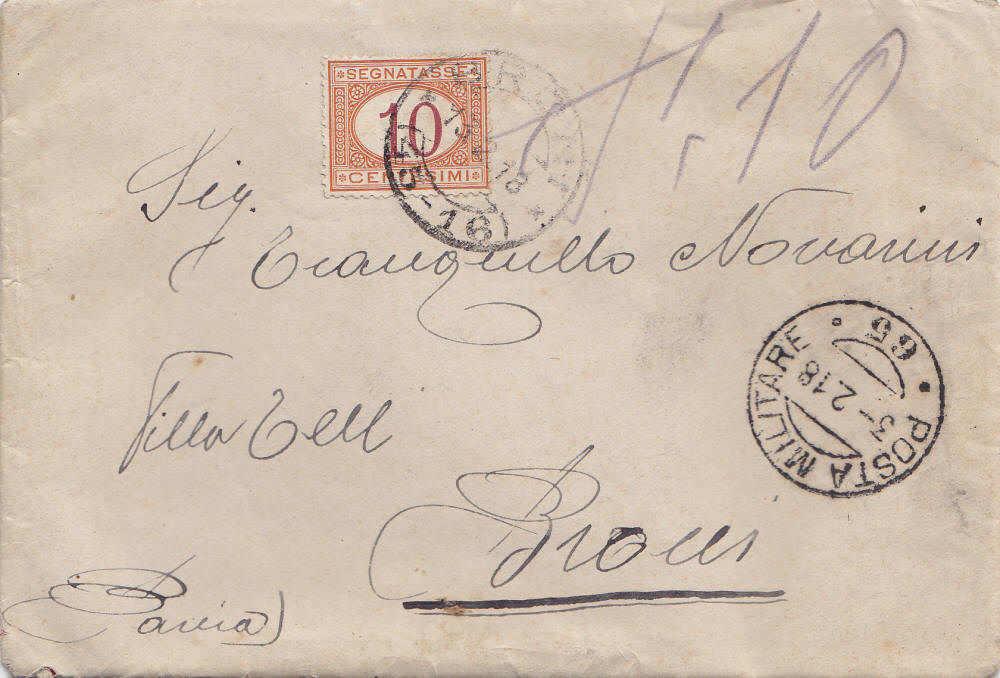 SEGNATASSE
10
CENTESIMI
T. 10
Sig. Tranquillo Novarini
Villa Tell
Broni
(Pavia)
POSTA MILITARE
65
3-2.18